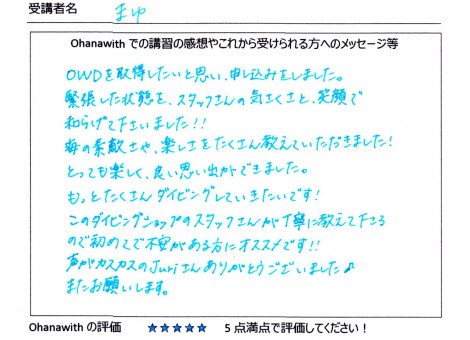 受講者名 まゆ
Ohanawith での講習の感想やこれから受けられる方へのメッセージ等
OWDを取得したいと思い、申し込みをしました。
緊張した状態を、スタッフさんの気さくさと、笑顔で
和らげて下さいました!!
海の素敵さや、楽しさをたくさん教えていただきました!
とっても楽しく、良い思い出ができました。
もっとたくさんダイビングしていきたいです!
このダイビングショップのスタッフさんが丁寧に教えて下さる
ので初めてで不安がある方にオススメです!!
声がカスカスのJuriさんありがとうございました♪
またお願いします。
Ohanawith の評価 ★★★★★ 5点満点で評価してください!